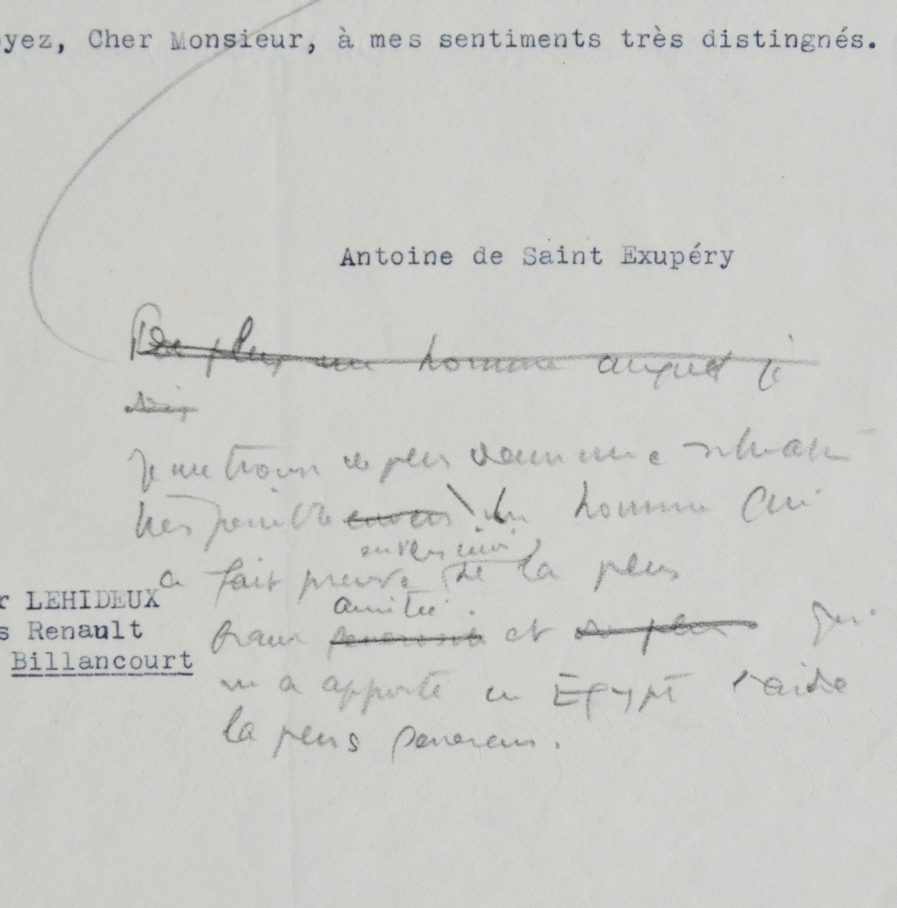 oyez, Cher Monsieur, à mes sentiments très distingnés.
Antoine de Saint Exupéry
De plus un homme auquel je
suis
Je me trouve de plus dans une situation
très pénible envers un homme qui
envers moi
a fait preuve de la plus
amitié.
r LEHIDEUX
s Renault
grande et de plus qui
Billancourt
m'a apporté en Égypte l'aide
la plus généreuse.